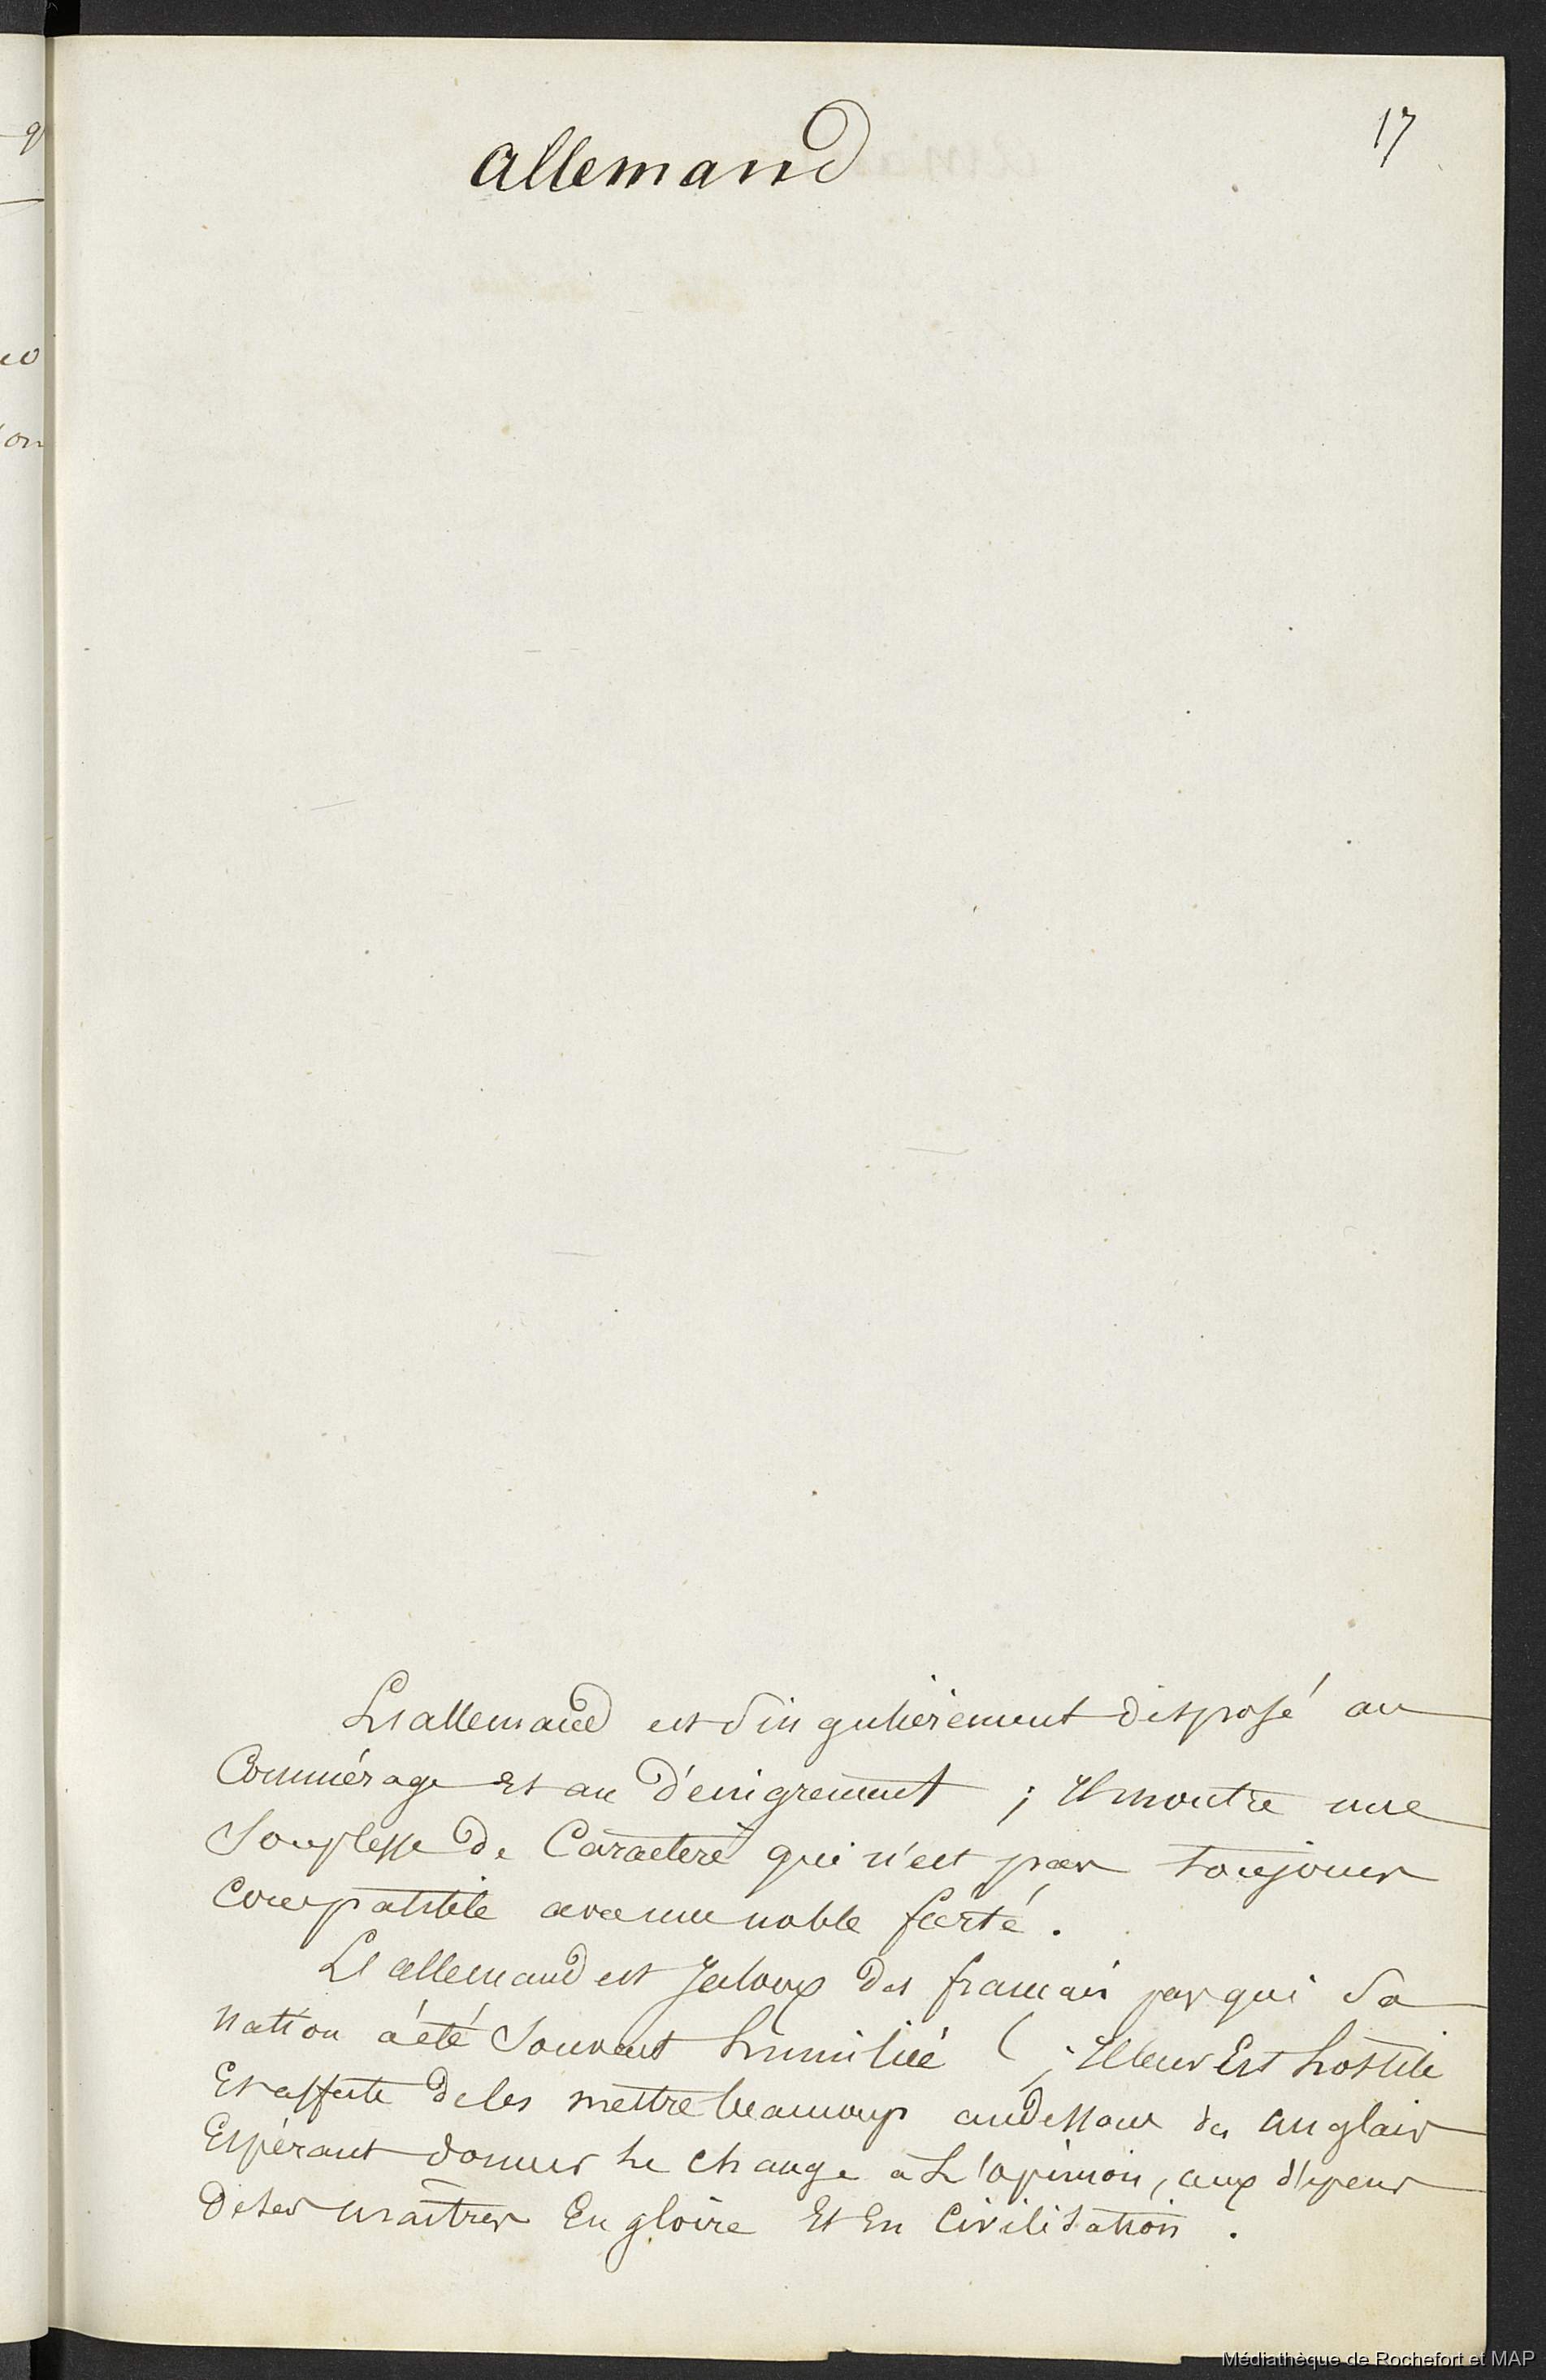 allemand
17
L'allemand est singulièrement disposé au
Commérage Et au Dénigrement ; Il montre une
Souplesse De Caractere qui n'est pas toujours
compatible avec une noble fierté.
L'allemand est Jaloux des francais par qui Sa
nation a été Souvent humiliée ( ; Il leur Est hostile
Et affecte de les mettre beaucoup au dessous des anglais
Espérant donner le change à L'opinion, aux dépens
De ses maîtres En gloire Et En Civilisation.
q
eo
on
Médiathèque de Rochefort et MAP